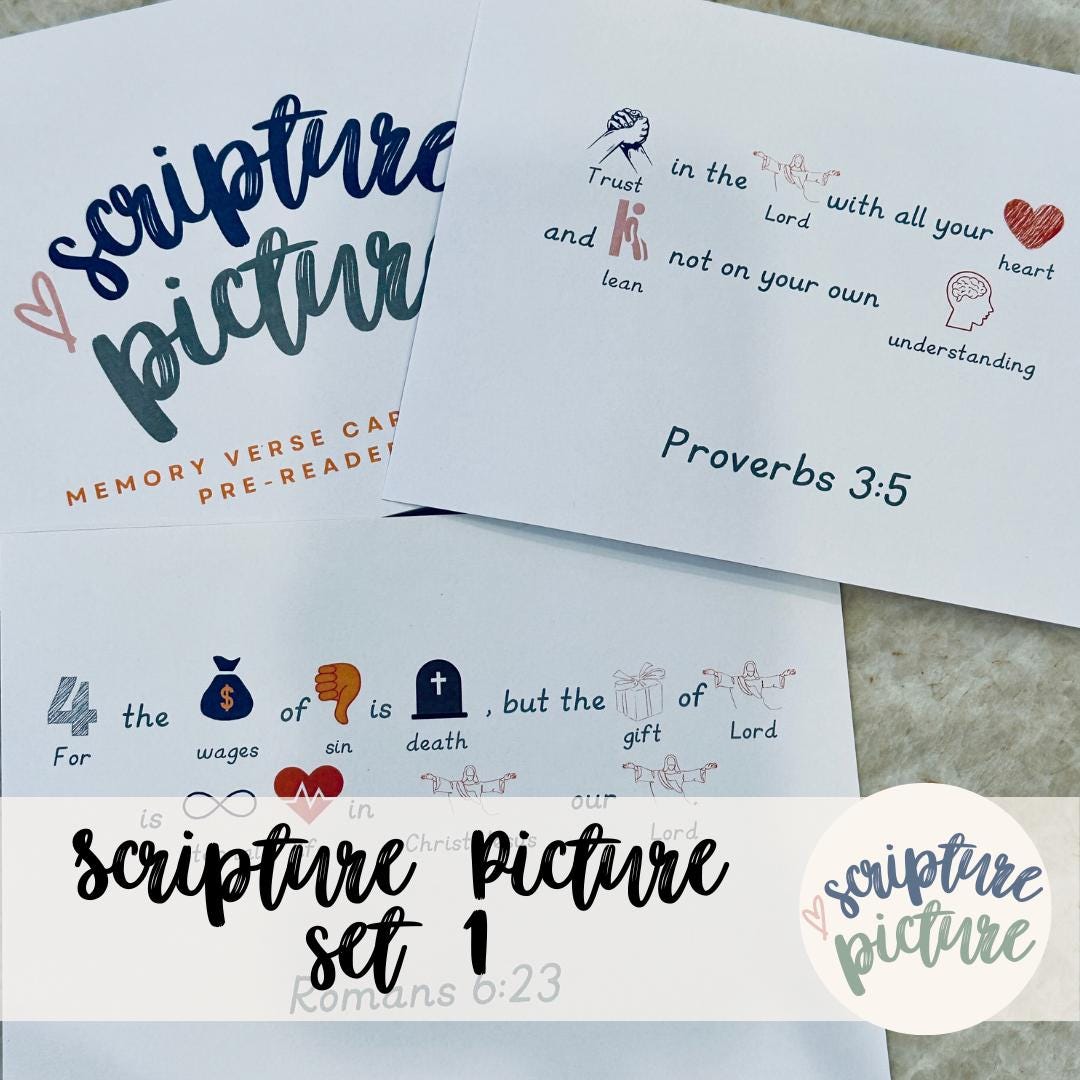 scripture
picture
MEMORY VERSE
PRE-READE
Trust in the Lord with all your heart
and lean not on your own understanding
Proverbs 3:5
4 the $ of is , but the of
For wages sin death gift Lord
is in our
Christ Jesus Lord
scripture picture
set 1
Romans 6:23
scripture
picture